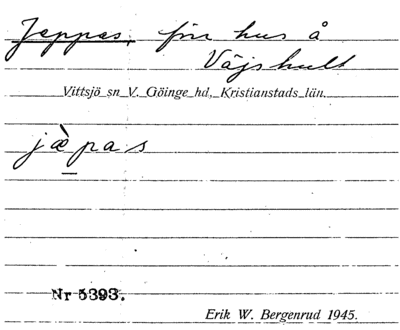 Jeppas, förr hus å
Väjshult
Vittsjö sn V. Göinge hd, Kristianstads län.
jæ̀pas
Nr 5393.
Erik W. Bergenrud 1945.